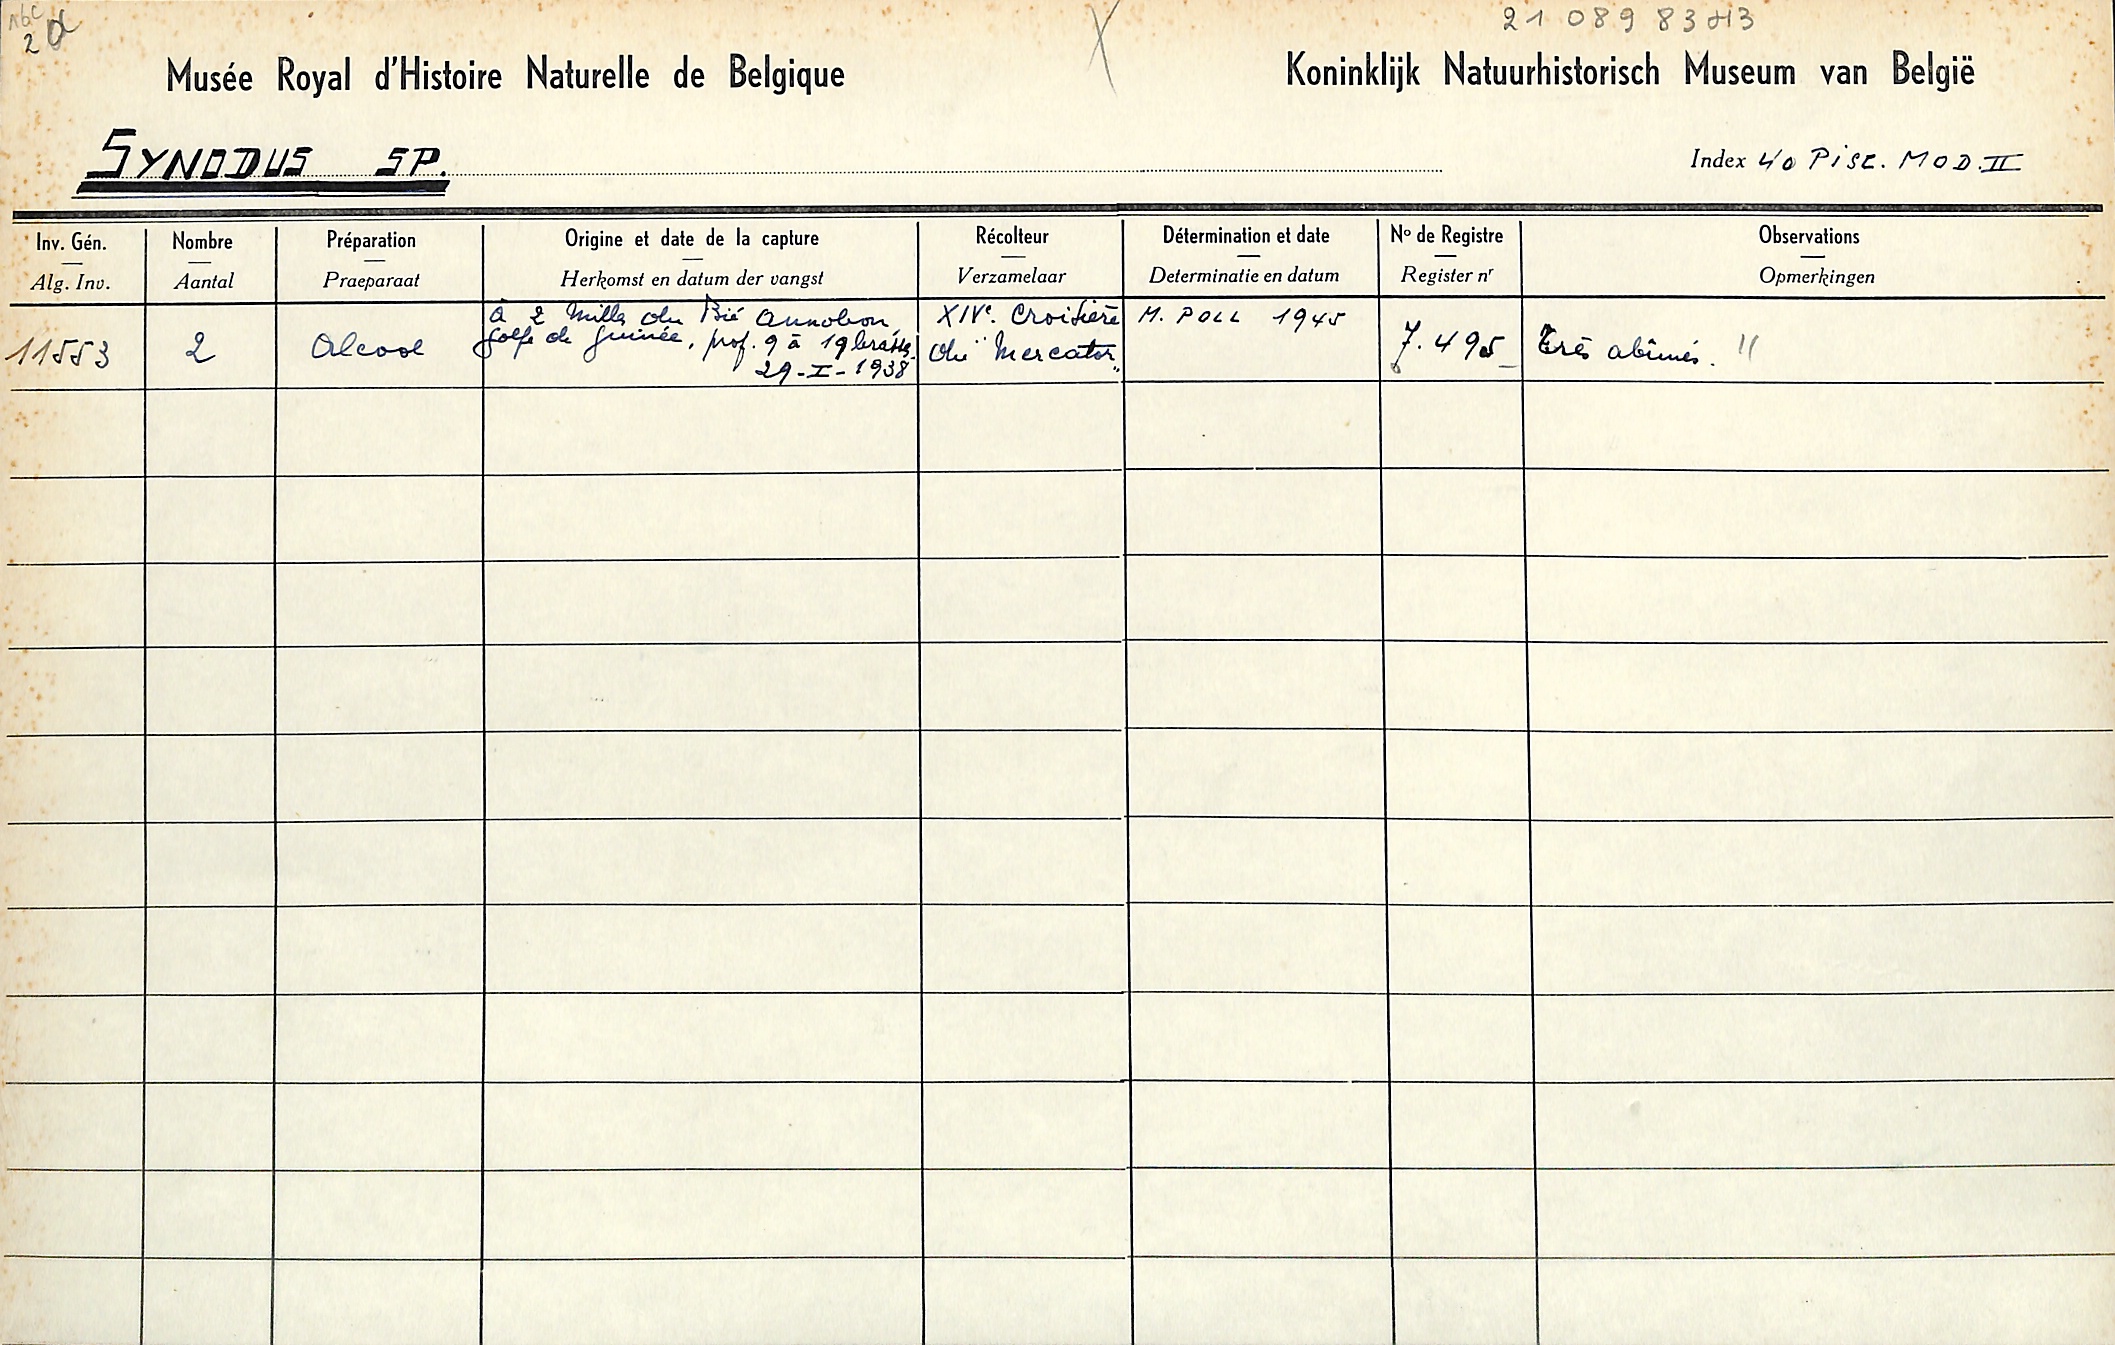 abc
2 α
21 089 8343
Musée Royal d'Histoire Naturelle de Belgique
Koninklijk Natuurhistorisch Museum van België
SYNODUS SP.
Index 40 PISC. MOD. II
Inv. Gén.
Alg. Inv.
Nombre
Aantal
Préparation
Praeparaat
Origine et date de la capture
Herkomst en datum der vangst
Récolteur
Verzamelaar
Détermination et date
Determinatie en datum
No de Registre
Register nr
Observations
Opmerkingen
11553
2
Alcool
à 2 milles du Pié Annobon,
Golfe de Guinée, prof. 9 à 19 brasses.
29-I-1938
XIVe. Croisière
du "Mercator"
M. POLL 1945
7.495
Très abîmés. "